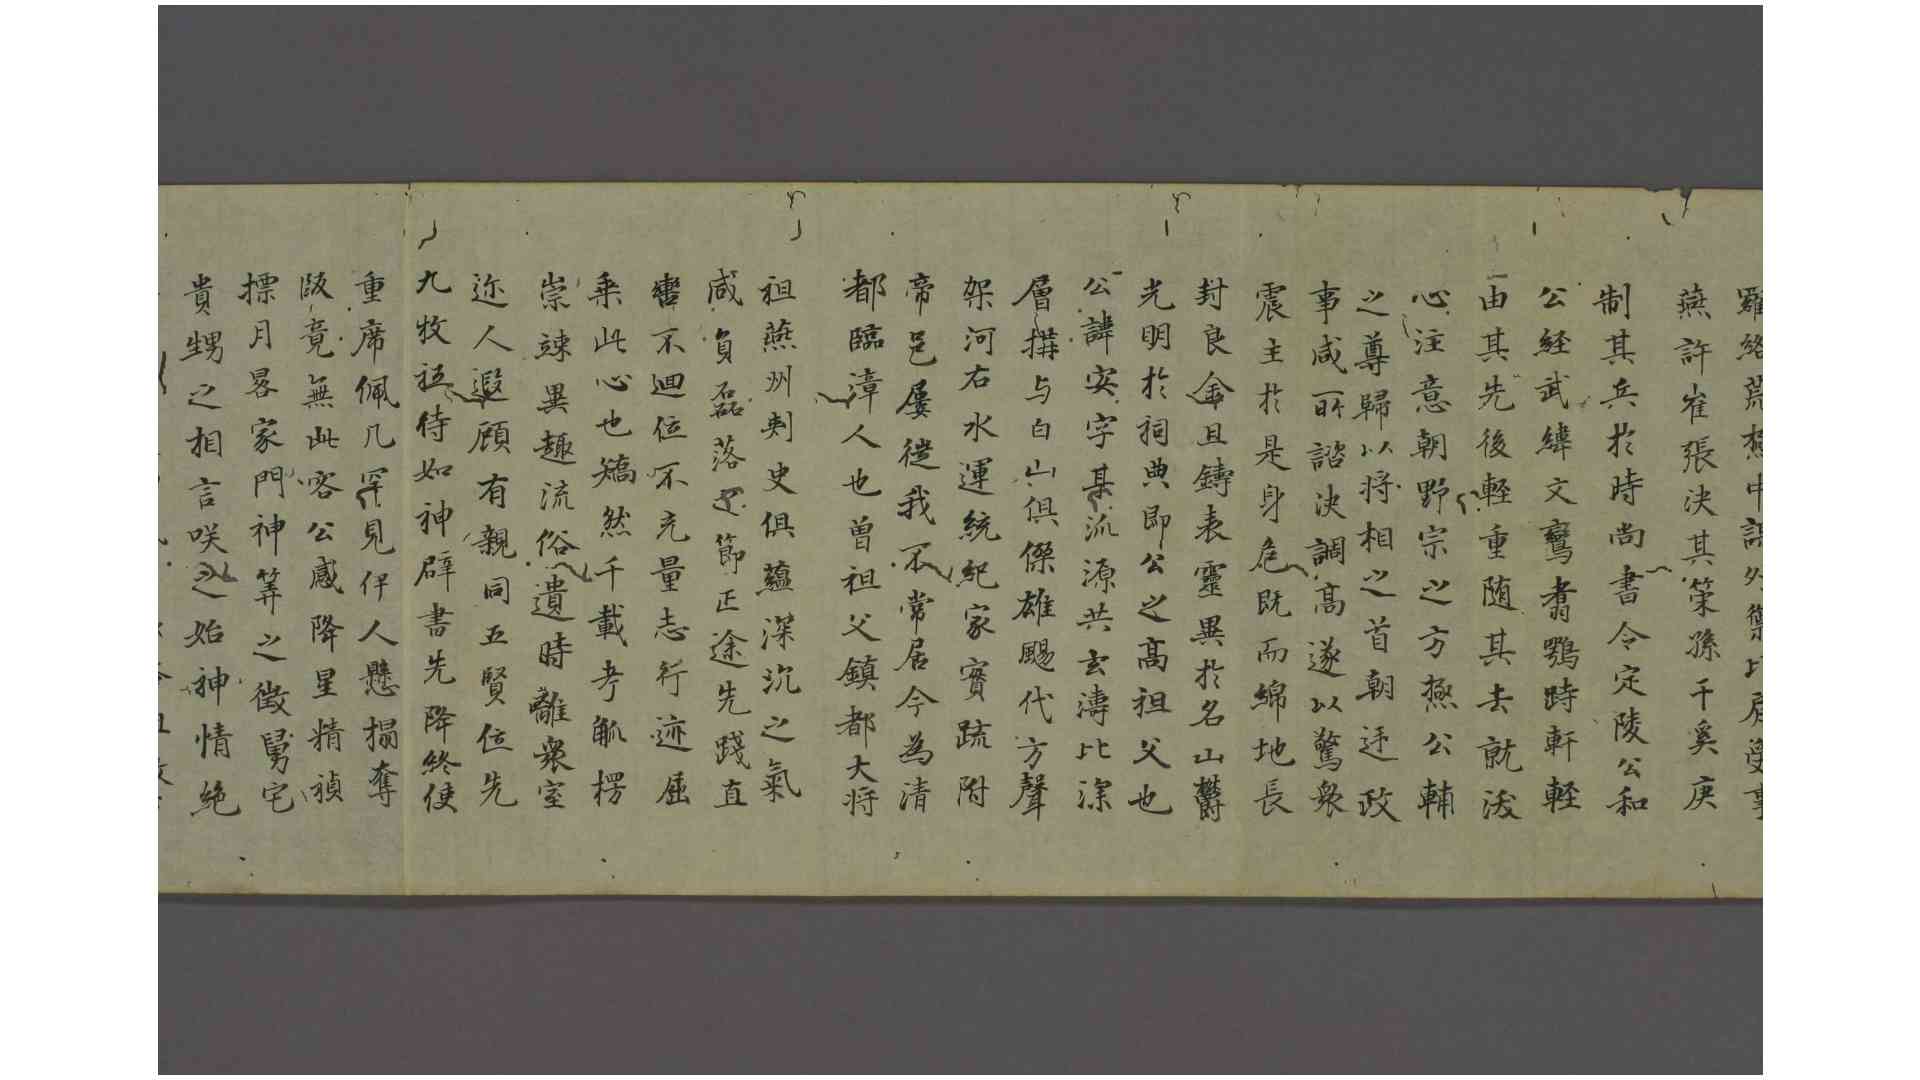 燕許崔張決其策孫千奚庚
制其兵於時尚書令定陵公和
公経武緯文鸞翥鶚跱軒軽
由其先後軽重随其去就浚
心注意朝野宗之方極公輔
之尊歸以将相之首朝迋政
事咸所諮決調高遂以驚衆
震主於是身危既而綿地長
封良金且鑄表靈異於名山欝
光明於祠典即公之高祖父也
公諱安字某派源共玄濤比深
層搆与白山俱傑雄颺代方聲
架河右水運統紀家賓跡附
帝邑屢徙我不常居今為清
都臨漳人也曽祖父鎮都大将
祖燕州刺史俱蘊深沉之氣
咸負磊落之節正途先踐直
轡不迴位不充量志行迹屈
乗此心也矯然千載考觚楞
崇竦異趣流俗遺時離衆室
迩人遐顧有親同五賢位先
九牧祗待如神辟書先降終使
重席佩几罕見伊人懸榻奪
陂竟無此容公感降星精禎
摽月晷家門神筭之徴舅宅
貴甥之相言咲之始神情絶